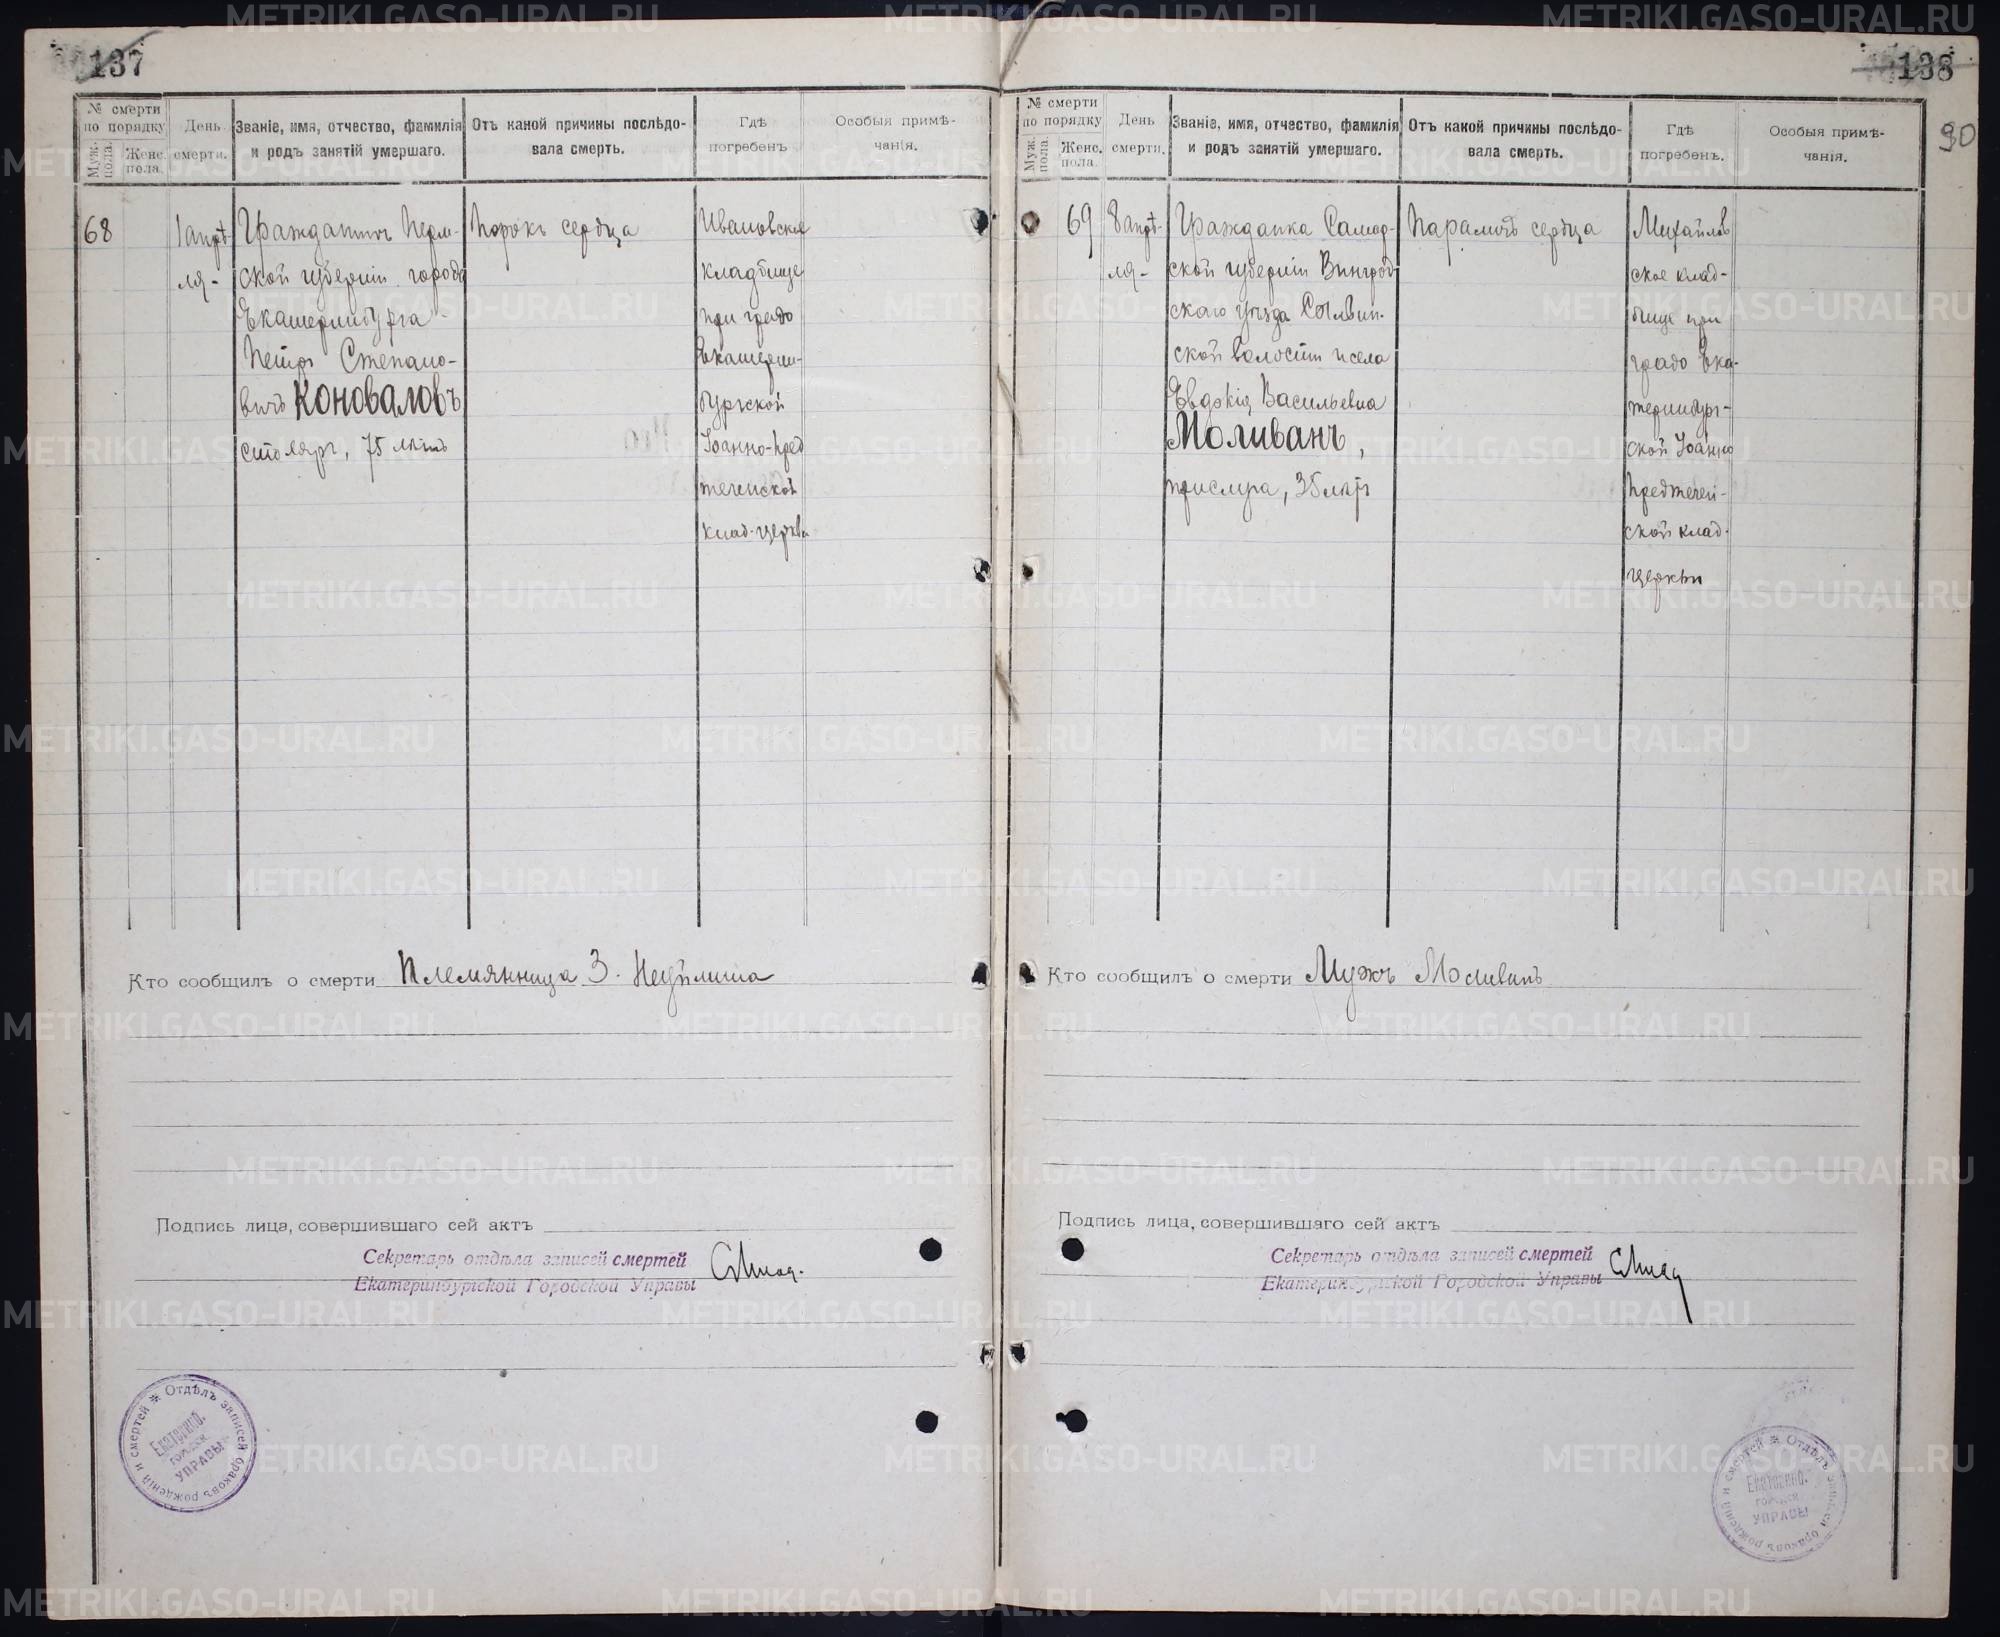 137
№ смерти по порядку
Муж. пола.
Женс. пола.
День смерти.
Званіе, имя, отчество, фамилія и родъ занятій умершаго.
Отъ какой причины послѣдовала смерть.
Гдѣ погребенъ
Особыя примѣчанія.
68
1 апрѣ-
ля-
Гражданинъ Перм-
ской губерніи города
Екатеринбурга
Петръ Степано-
вичъ Коноваловъ
столяръ, 75 лѣтъ
Порокъ сердца
Ивановское
кладбище
при градо
Екатерин-
бургской
Іоанно-Пред
теченской
клад. церкви
Кто сообщилъ о смерти Племянница З.
Подпись лица, совершившаго сей актъ
Секретарь отдѣла записей смертей
Екатеринбургской Городской Управы
Отдѣлъ записей браковъ рожденій и смертей
Екатеринб.
городск
УПРАВЫ
138
90
№ смерти по порядку
Муж. пола.
Женс. пола.
День смерти.
Званіе, имя, отчество, фамилія и родъ занятій умершаго.
Отъ какой причины послѣдовала смерть.
Гдѣ погребенъ.
Особыя примѣчанія.
69
8 апрѣ-
ля-
Гражданка
ской губерніи
скаго уѣзда
ской волости и села
Евдокія Васильевна
Моливанъ,
прислуга, 35 лѣтъ
Параличъ сердца
Михайлов
ское клад-
бище при
градо Ека-
теринбург-
ской Іоанно
Предтечен-
ской клад.
церкви
Кто сообщилъ о смерти Мужъ Моливанъ
Подпись лица, совершившаго сей актъ
Секретарь отдѣла записей смертей
Екатеринбургской Городской Управы
Отдѣлъ записей браковъ рожденій и смертей
Екатеринб.
городск
УПРАВЫ
METRIKI.GASO-URAL.RU